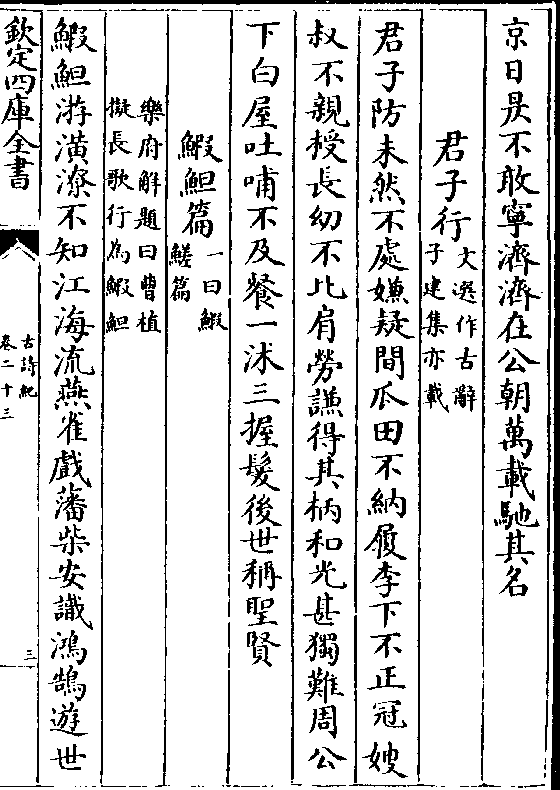 京日昃不敢寧濟濟在公朝萬載馳其名
君子行
文選作古辭
子建集亦載
君子防未然不處嫌疑間瓜田不納履李下不正冠嫂
叔不親授長幼不比肩勞謙得其柄和光甚獨難周公
下白屋吐哺不及餐一沐三握髮後世稱聖賢
鰕䱇篇
一曰鰕
鱔篇
樂府解題曰曹植
擬長歌行為鰕䱇
鰕䱇游潢潦不知江海流燕雀戲藩柴安識鴻鵠遊世
欽定四庫全書
古詩紀
卷二十三
三